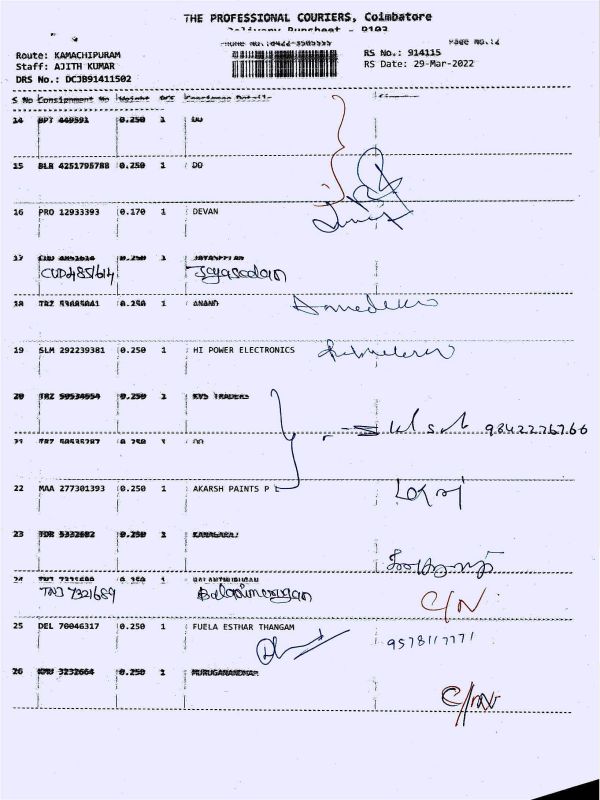 THE PROFESSIONAL COURIERS, Coimbatore
Delivery Runsheet - 9103
Route: KAMACHIPURAM
Staff: AJITH KUMAR
DRS No.: DCJB91411502
Page No.:2
RS No.: 914115
RS Date: 29-Mar-2022
S No Consignment No Weight PCS Consignee Details
14 BPT 449591 0.250 1 DO
15 BLR 4251795788 0.250 1 DO
16 PRO 12933393 0.170 1 DEVAN
17 CUD 4851614 0.250 1
CUD4851614 Jayaseelan
18 TRZ 53685041 0.250 1 ANAND
19 SLM 292239381 0.250 1 HI POWER ELECTRONICS
20 TRZ 50534554 0.250 1 KVS TRADERS
9842276766
21 TRZ 50535287 0.250 1 DO
22 MAA 277301393 0.250 1 AKARSH PAINTS P L
23 TDR 5332682 0.250 1 KANAGARAJ
24 TNJ 7321689 0.250 1 BALAMURUGAN
TNJ 7321689 Balamurugan
C/N
25 DEL 70046317 0.250 1 FUELA ESTHAR THANGAM
9578117771
26 KMU 3232664 0.250 1 MURUGANANDHAM
C/N